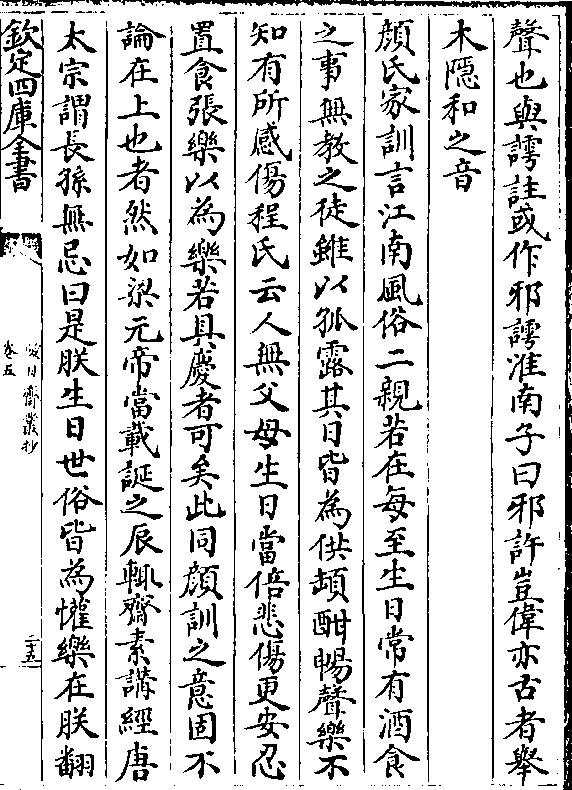 聲也與謣註或作邪謣淮南子曰邪許豈偉亦古者舉
木隱和之音
顔氏家訓言江南風俗二親若在每至生日常有酒食
之事無教之徒雖以孤露其日皆為供頓酣暢聲樂不
知有所感傷程氏云人無父母生日當倍悲傷更安忍
置食張樂以為樂若具慶者可矣此同顔訓之意固不
論在上也者然如梁元帝當載誕之辰輒齋素講經唐
太宗謂長孫無忌曰是朕生日世俗皆為懽樂在朕翻
欽定四庫全書
愛日齋叢抄
卷五
二十五